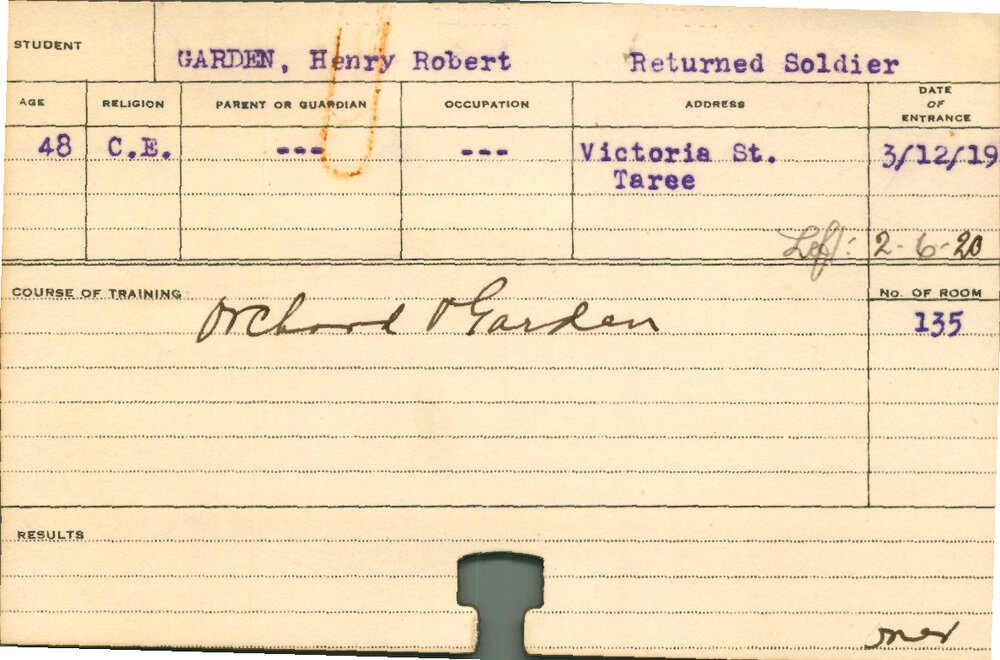 STUDENT
GARDEN, Henry Robert Returned Soldier
AGE RELIGION PARENT OR GUARDIAN OCCUPATION ADDRESS DATE OF ENTRANCE
48 C.E. --- --- Victoria St. 3/12/19
Taree
Left: 2-6-20
COURSE OF TRAINING No. OF ROOM
Orchard & Garden 135
RESULTS
over